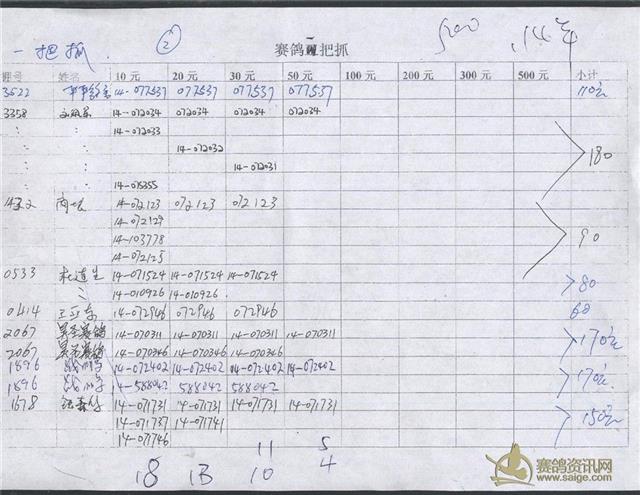 一把抓 ② 5000 14年
赛鸽一把抓
棚号 姓名 10 元 20 元 30 元 50 元 100 元 200 元 300 元 500 元 小计
3522 14-077537 077537 077537 077537 110元
3358 14-072034 072034 072034 072034
〃 〃 14-072033
〃 〃 14-072032
〃 〃 14-072031 180
〃 〃 14-075355
14-072123 072123 072123
14-072129
14-103778 90
14-072125
0533 杜连生 14-071524 14-071524 14-071524
〃 14-010926 14-010926 80
0414 14-072946 072946 072946 60
2067 14-070311 14-070311 14-070311 14-070311
2067 14-070346 14-070346 14-070346 170元
1896 14-072402 14-072402 14-072402 14-072402
1896 14-588042 588042 588042 170元
1678 14-071731 14-071731 14-071731 14-071731
14-071737 14-071741 150元
14-071746
11 5
18 13 10 4
赛鸽资讯网
www.saige.com